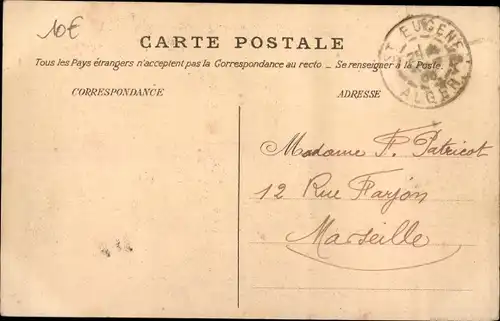 10€
CARTE POSTALE
Tous les Pays étrangers n'acceptent pas la Correspondance au recto _ Se renseigner à la Poste.
CORRESPONDANCE
ADRESSE
ST EUGENE
ALGER
Madame F. Patricot
12 Rue Farjon
Marseille